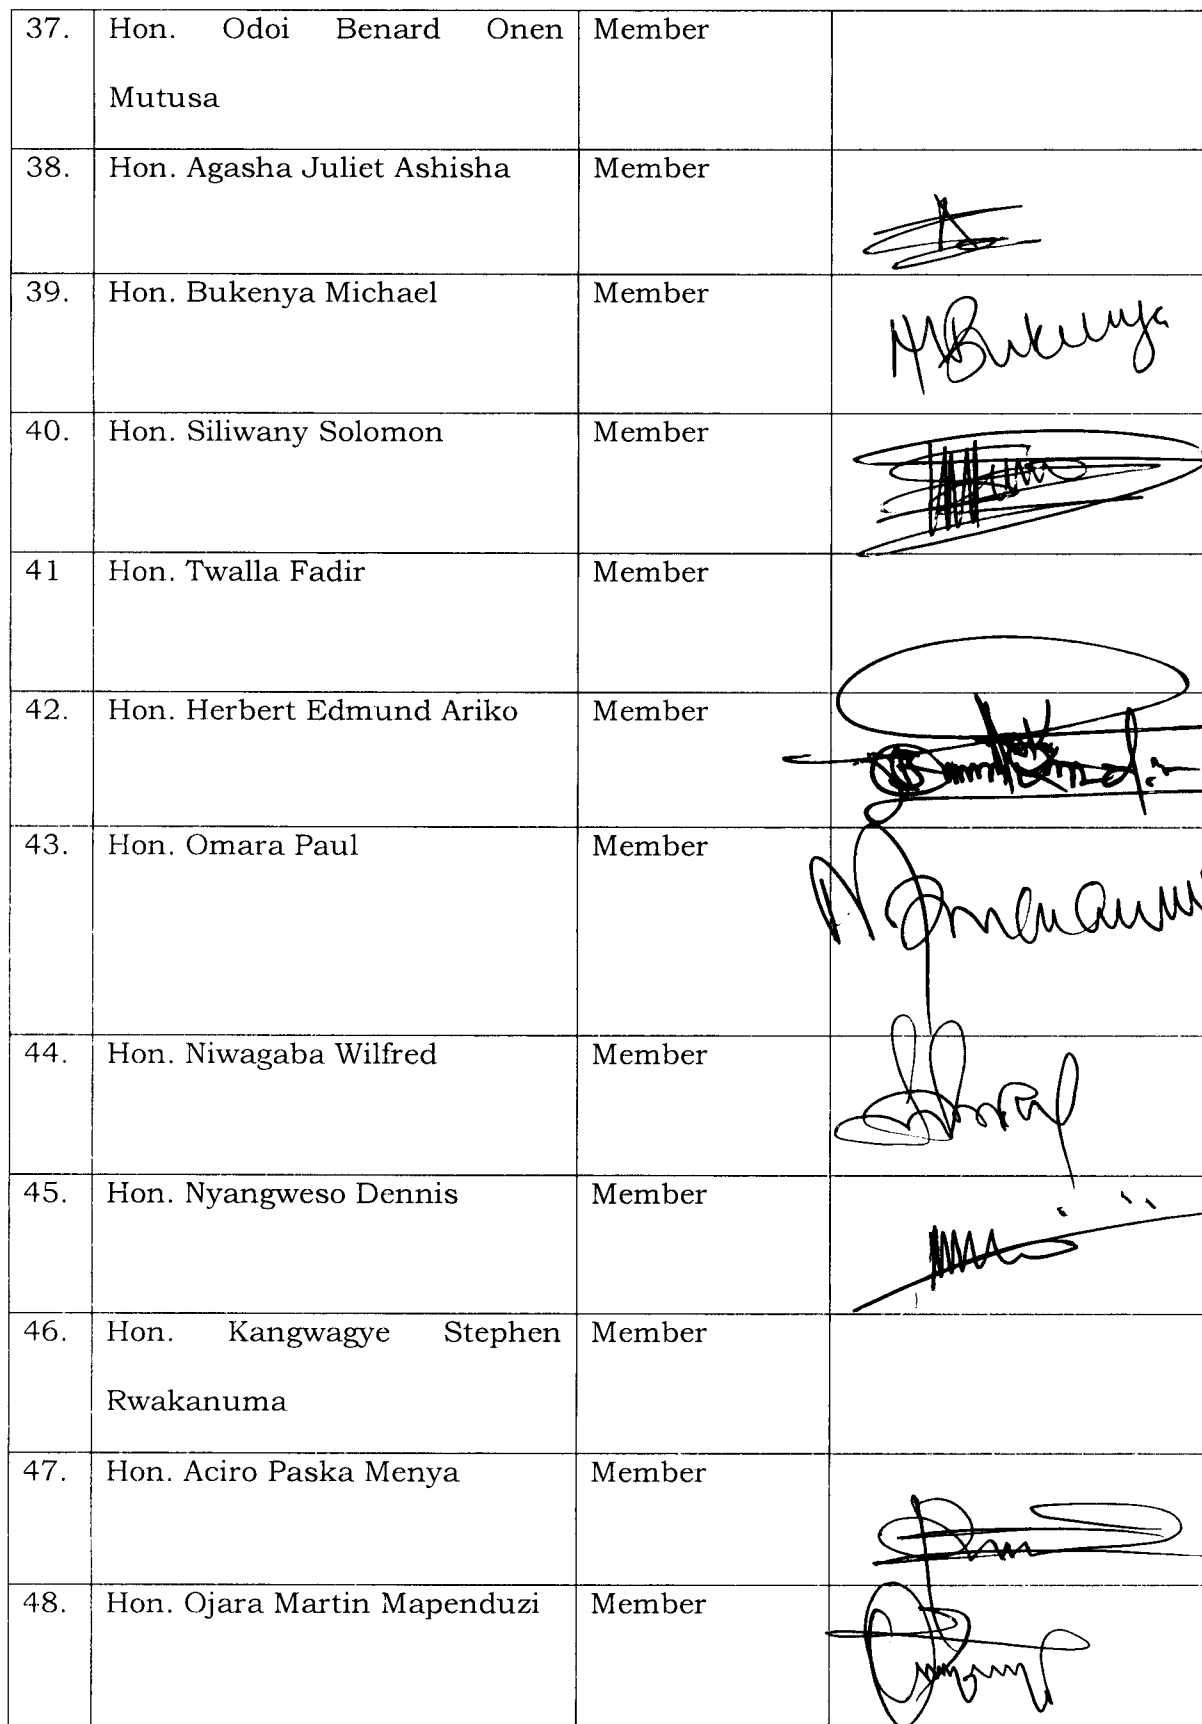 37. Hon. Odoi Benard Onen Member
Mutusa
38. Hon. Agasha Juliet Ashisha Member
39. Hon. Bukenya Michael Member
MBukenya
40. Hon. Siliwany Solomon Member
41 Hon. Twalla Fadir Member
42. Hon. Herbert Edmund Ariko Member
43. Hon. Omara Paul Member
44. Hon. Niwagaba Wilfred Member
45. Hon. Nyangweso Dennis Member
46. Hon. Kangwagye Stephen Member
Rwakanuma
47. Hon. Aciro Paska Menya Member
48. Hon. Ojara Martin Mapenduzi Member